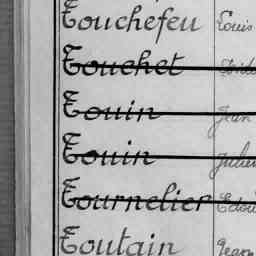 Touchefeu Louis
Touchet
Touin Jean
Touin Julien
Tournelier Edou
Toutain Jean